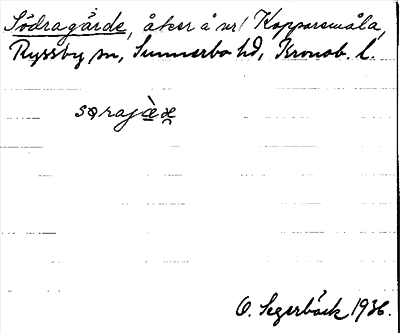 Södragärde, åker å nr 1 Kopparsmåla,
Ryssby sn, Sunnerbo hd, Kronob. l.
O. Segerbäck 1936.